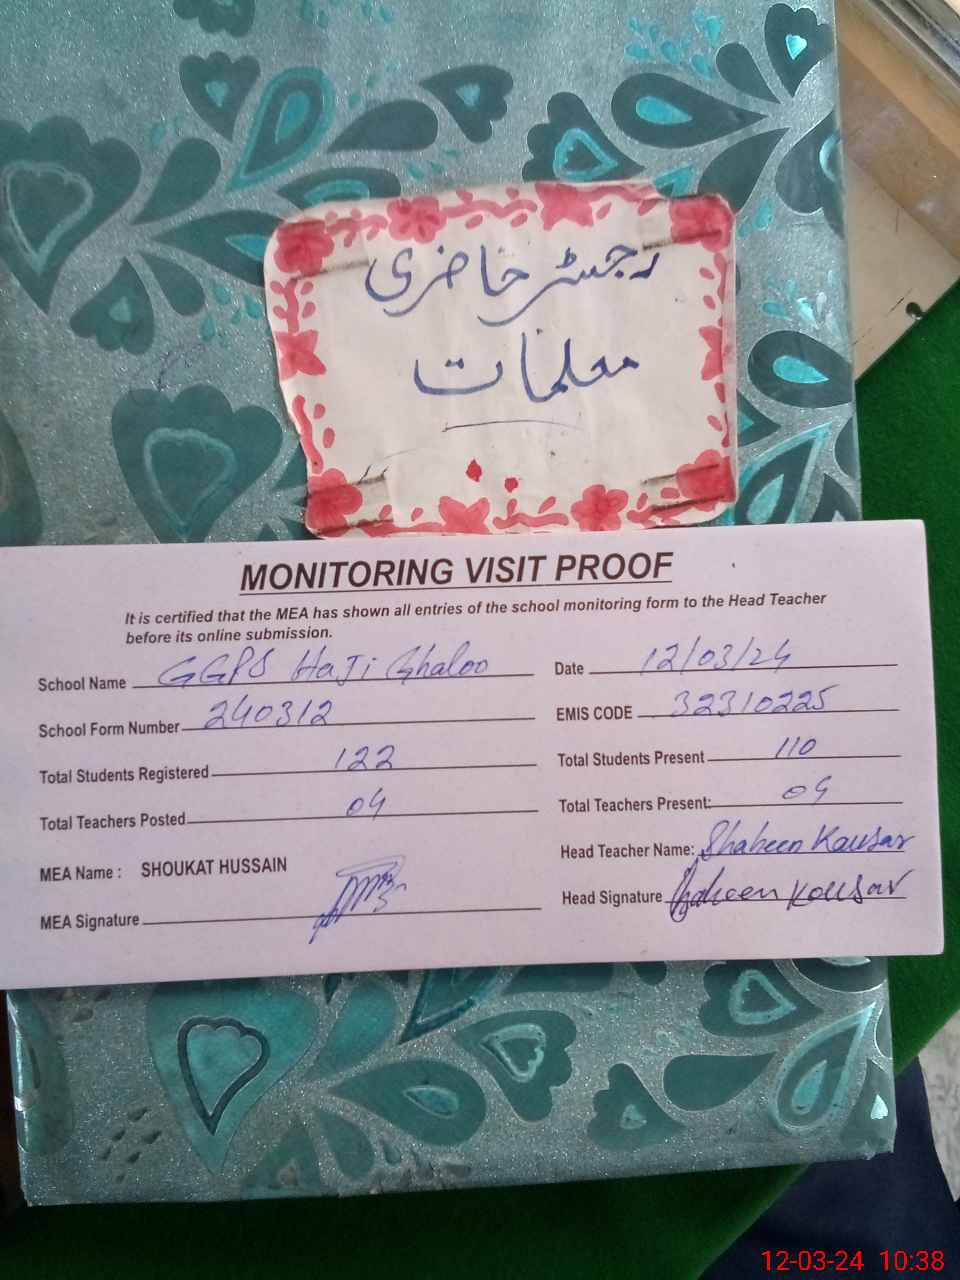 رجسٹر حاضری
معلمات
MONITORING VISIT PROOF
It is certified that the MEA has shown all entries of the school monitoring form to the Head Teacher
before its online submission.
School Name GGPS Haji Ghaloo
Date 12/03/24
School Form Number 240312
EMIS CODE 32310225
Total Students Registered 122
Total Students Present 110
Total Teachers Posted 04
Total Teachers Present: 04
MEA Name : SHOUKAT HUSSAIN
Head Teacher Name: Shaheen Kausar
MEA Signature
Head Signature Shaheen Kousar
12-03-24 10:38